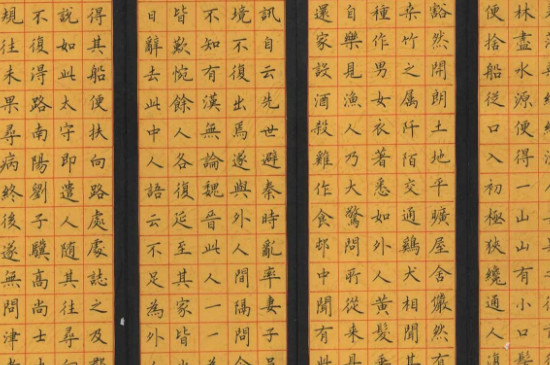 林盡水源便得一山山有小口髣
便捨船從口入初極狹纔通人復
豁然開朗土地平曠屋舍儼然有
桑竹之属阡陌交通鷄犬相聞其
種作男女衣著悉如外人黃髮垂
自樂見漁人乃大驚問所從來具
還家設酒殺雞作食邨中聞有此
訊自云先世避秦時亂率妻子
境不復出焉遂與外人間隔問
不知有漢無論魏晉此人一一
皆歎惋餘人各復延至其家皆出
日辭去此中人語云不足為外人
得其船便扶向路處處誌之及郡
說如此太守即遣人隨其往尋向
不復得路南陽劉子驥高尚士也
規往未果尋病終後遂無問津者